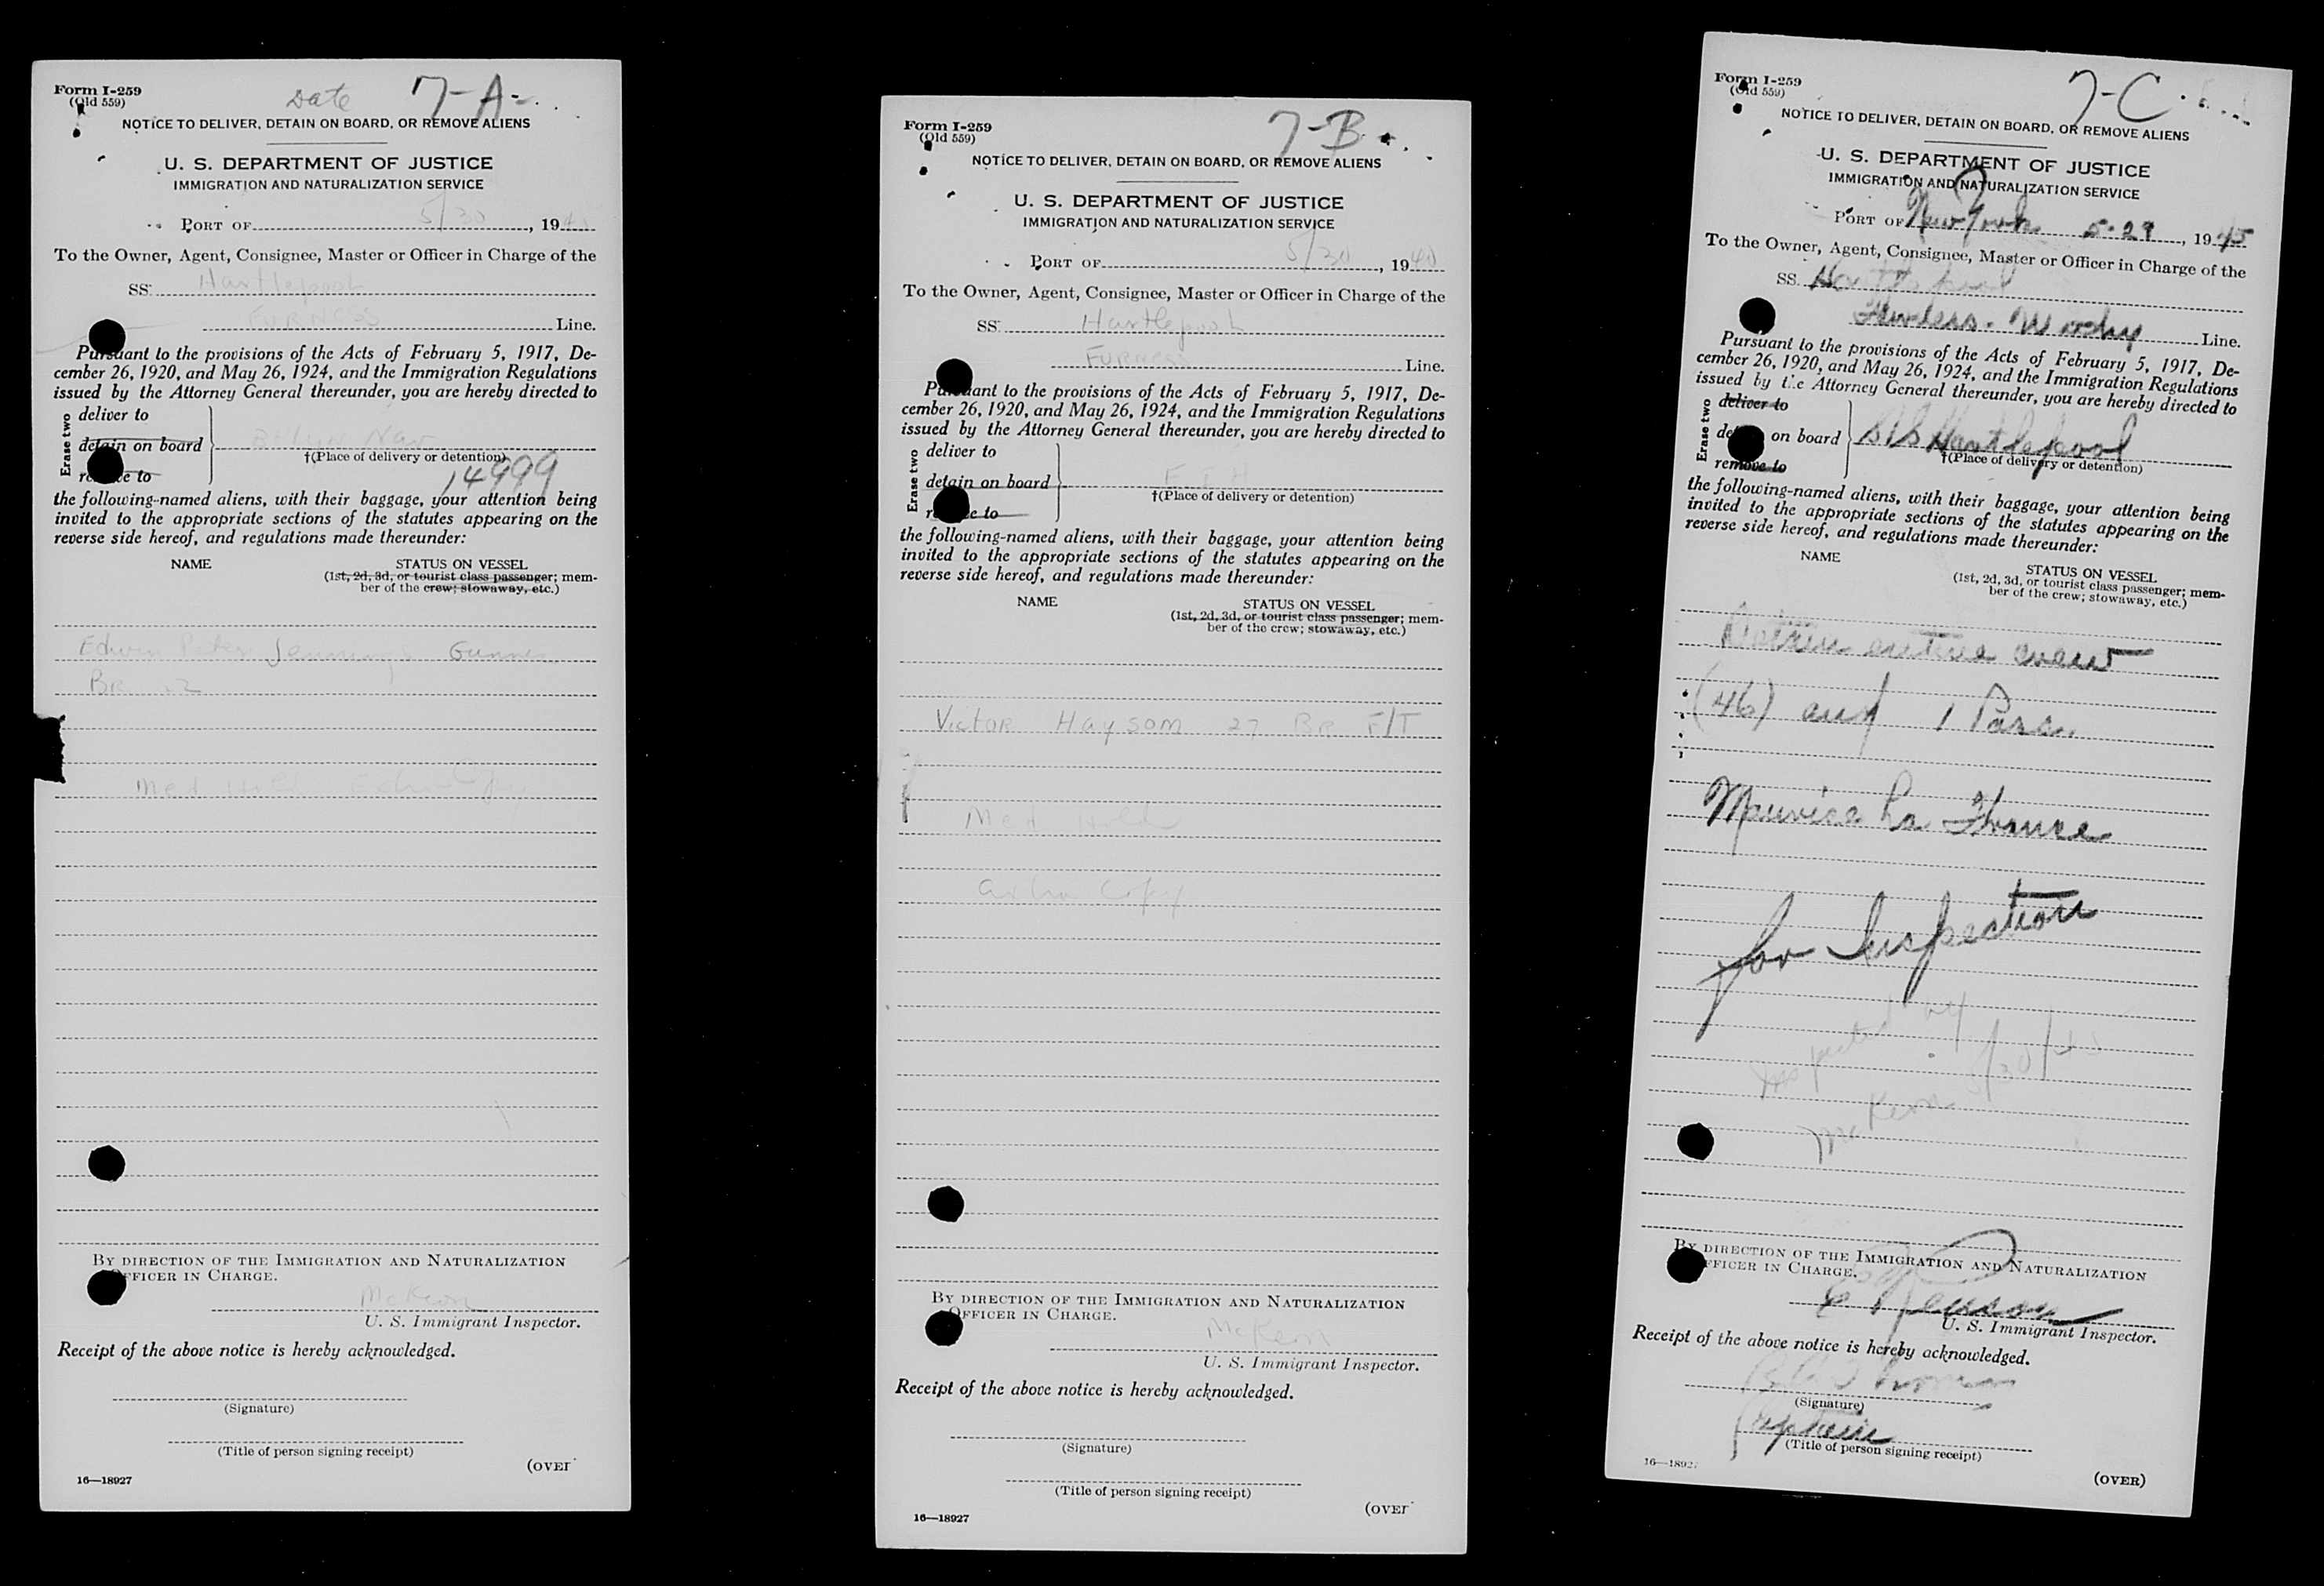 Form I-259
(Old 559)
Date 7-A-
NOTICE TO DELIVER, DETAIN ON BOARD, OR REMOVE ALIENS
U. S. DEPARTMENT OF JUSTICE
IMMIGRATION AND NATURALIZATION SERVICE
PORT OF 5/30, 19
To the Owner, Agent, Consignee, Master or Officer in Charge of the
SS. Hartlepool
FURNESS Line.
Pursuant to the provisions of the Acts of February 5, 1917, De-
cember 26, 1920, and May 26, 1924, and the Immigration Regulations
issued by the Attorney General thereunder, you are hereby directed to
Erase two
deliver to
detain on board
remove to
†(Place of delivery or detention)
14999
the following-named aliens, with their baggage, your attention being
invited to the appropriate sections of the statutes appearing on the
reverse side hereof, and regulations made thereunder:
NAME STATUS ON VESSEL
(1st, 2d, 3d, or tourist class passenger; mem-
ber of the crew; stowaway, etc.)
Edwin Peter Jennings Gunner
BR 22
Med Hold
BY DIRECTION OF THE IMMIGRATION AND NATURALIZATION
OFFICER IN CHARGE.
McKeon
U. S. Immigrant Inspector.
Receipt of the above notice is hereby acknowledged.
(Signature)
(Title of person signing receipt)
(OVER
16—18927
Form I-259
(Old 559)
7-B
NOTICE TO DELIVER, DETAIN ON BOARD, OR REMOVE ALIENS
U. S. DEPARTMENT OF JUSTICE
IMMIGRATION AND NATURALIZATION SERVICE
PORT OF 5/30, 19
To the Owner, Agent, Consignee, Master or Officer in Charge of the
SS. Hartlepool
FURNESS Line.
Pursuant to the provisions of the Acts of February 5, 1917, De-
cember 26, 1920, and May 26, 1924, and the Immigration Regulations
issued by the Attorney General thereunder, you are hereby directed to
Erase two
deliver to
detain on board
remove to
†(Place of delivery or detention)
the following-named aliens, with their baggage, your attention being
invited to the appropriate sections of the statutes appearing on the
reverse side hereof, and regulations made thereunder:
NAME STATUS ON VESSEL
(1st, 2d, 3d, or tourist class passenger; mem-
ber of the crew; stowaway, etc.)
Victor Haysom 27 BR F/T
Med Hold
Copy
BY DIRECTION OF THE IMMIGRATION AND NATURALIZATION
OFFICER IN CHARGE.
McKeon
U. S. Immigrant Inspector.
Receipt of the above notice is hereby acknowledged.
(Signature)
(Title of person signing receipt)
(OVER
16—18927
Form I-259
(Old 559)
7-C
NOTICE TO DELIVER, DETAIN ON BOARD, OR REMOVE ALIENS
U. S. DEPARTMENT OF JUSTICE
IMMIGRATION AND NATURALIZATION SERVICE
PORT OF New York 5-29, 1945
To the Owner, Agent, Consignee, Master or Officer in Charge of the
SS. Hartlepool
Line.
Pursuant to the provisions of the Acts of February 5, 1917, De-
cember 26, 1920, and May 26, 1924, and the Immigration Regulations
issued by the Attorney General thereunder, you are hereby directed to
Erase two
deliver to
detain on board
remove to
S/S Hartlepool
†(Place of delivery or detention)
the following-named aliens, with their baggage, your attention being
invited to the appropriate sections of the statutes appearing on the
reverse side hereof, and regulations made thereunder:
NAME STATUS ON VESSEL
(1st, 2d, 3d, or tourist class passenger; mem-
ber of the crew; stowaway, etc.)
Detain entire crew
(46) and 1 Pass.
Maurice La
for Inspection
Inspected by
McKeon 5/30/45
BY DIRECTION OF THE IMMIGRATION AND NATURALIZATION
OFFICER IN CHARGE.
U. S. Immigrant Inspector.
Receipt of the above notice is hereby acknowledged.
(Signature)
Captain
(Title of person signing receipt)
16—18927
(OVER)